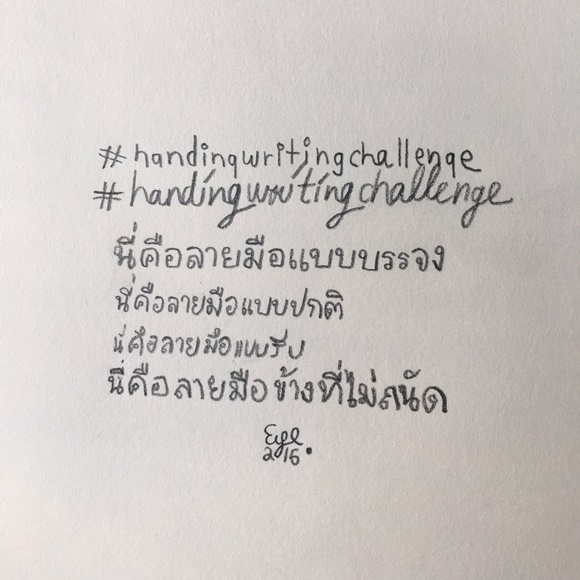 #handingwritingchallenge
#handingwritingchallenge
นี่คือลายมือแบบบรรจง
นี่คือลายมือแบบปกติ
นี่คือลายมือแบบรีบ
นี่คือลายมือข้างที่ไม่ถนัด
Eye
2016.